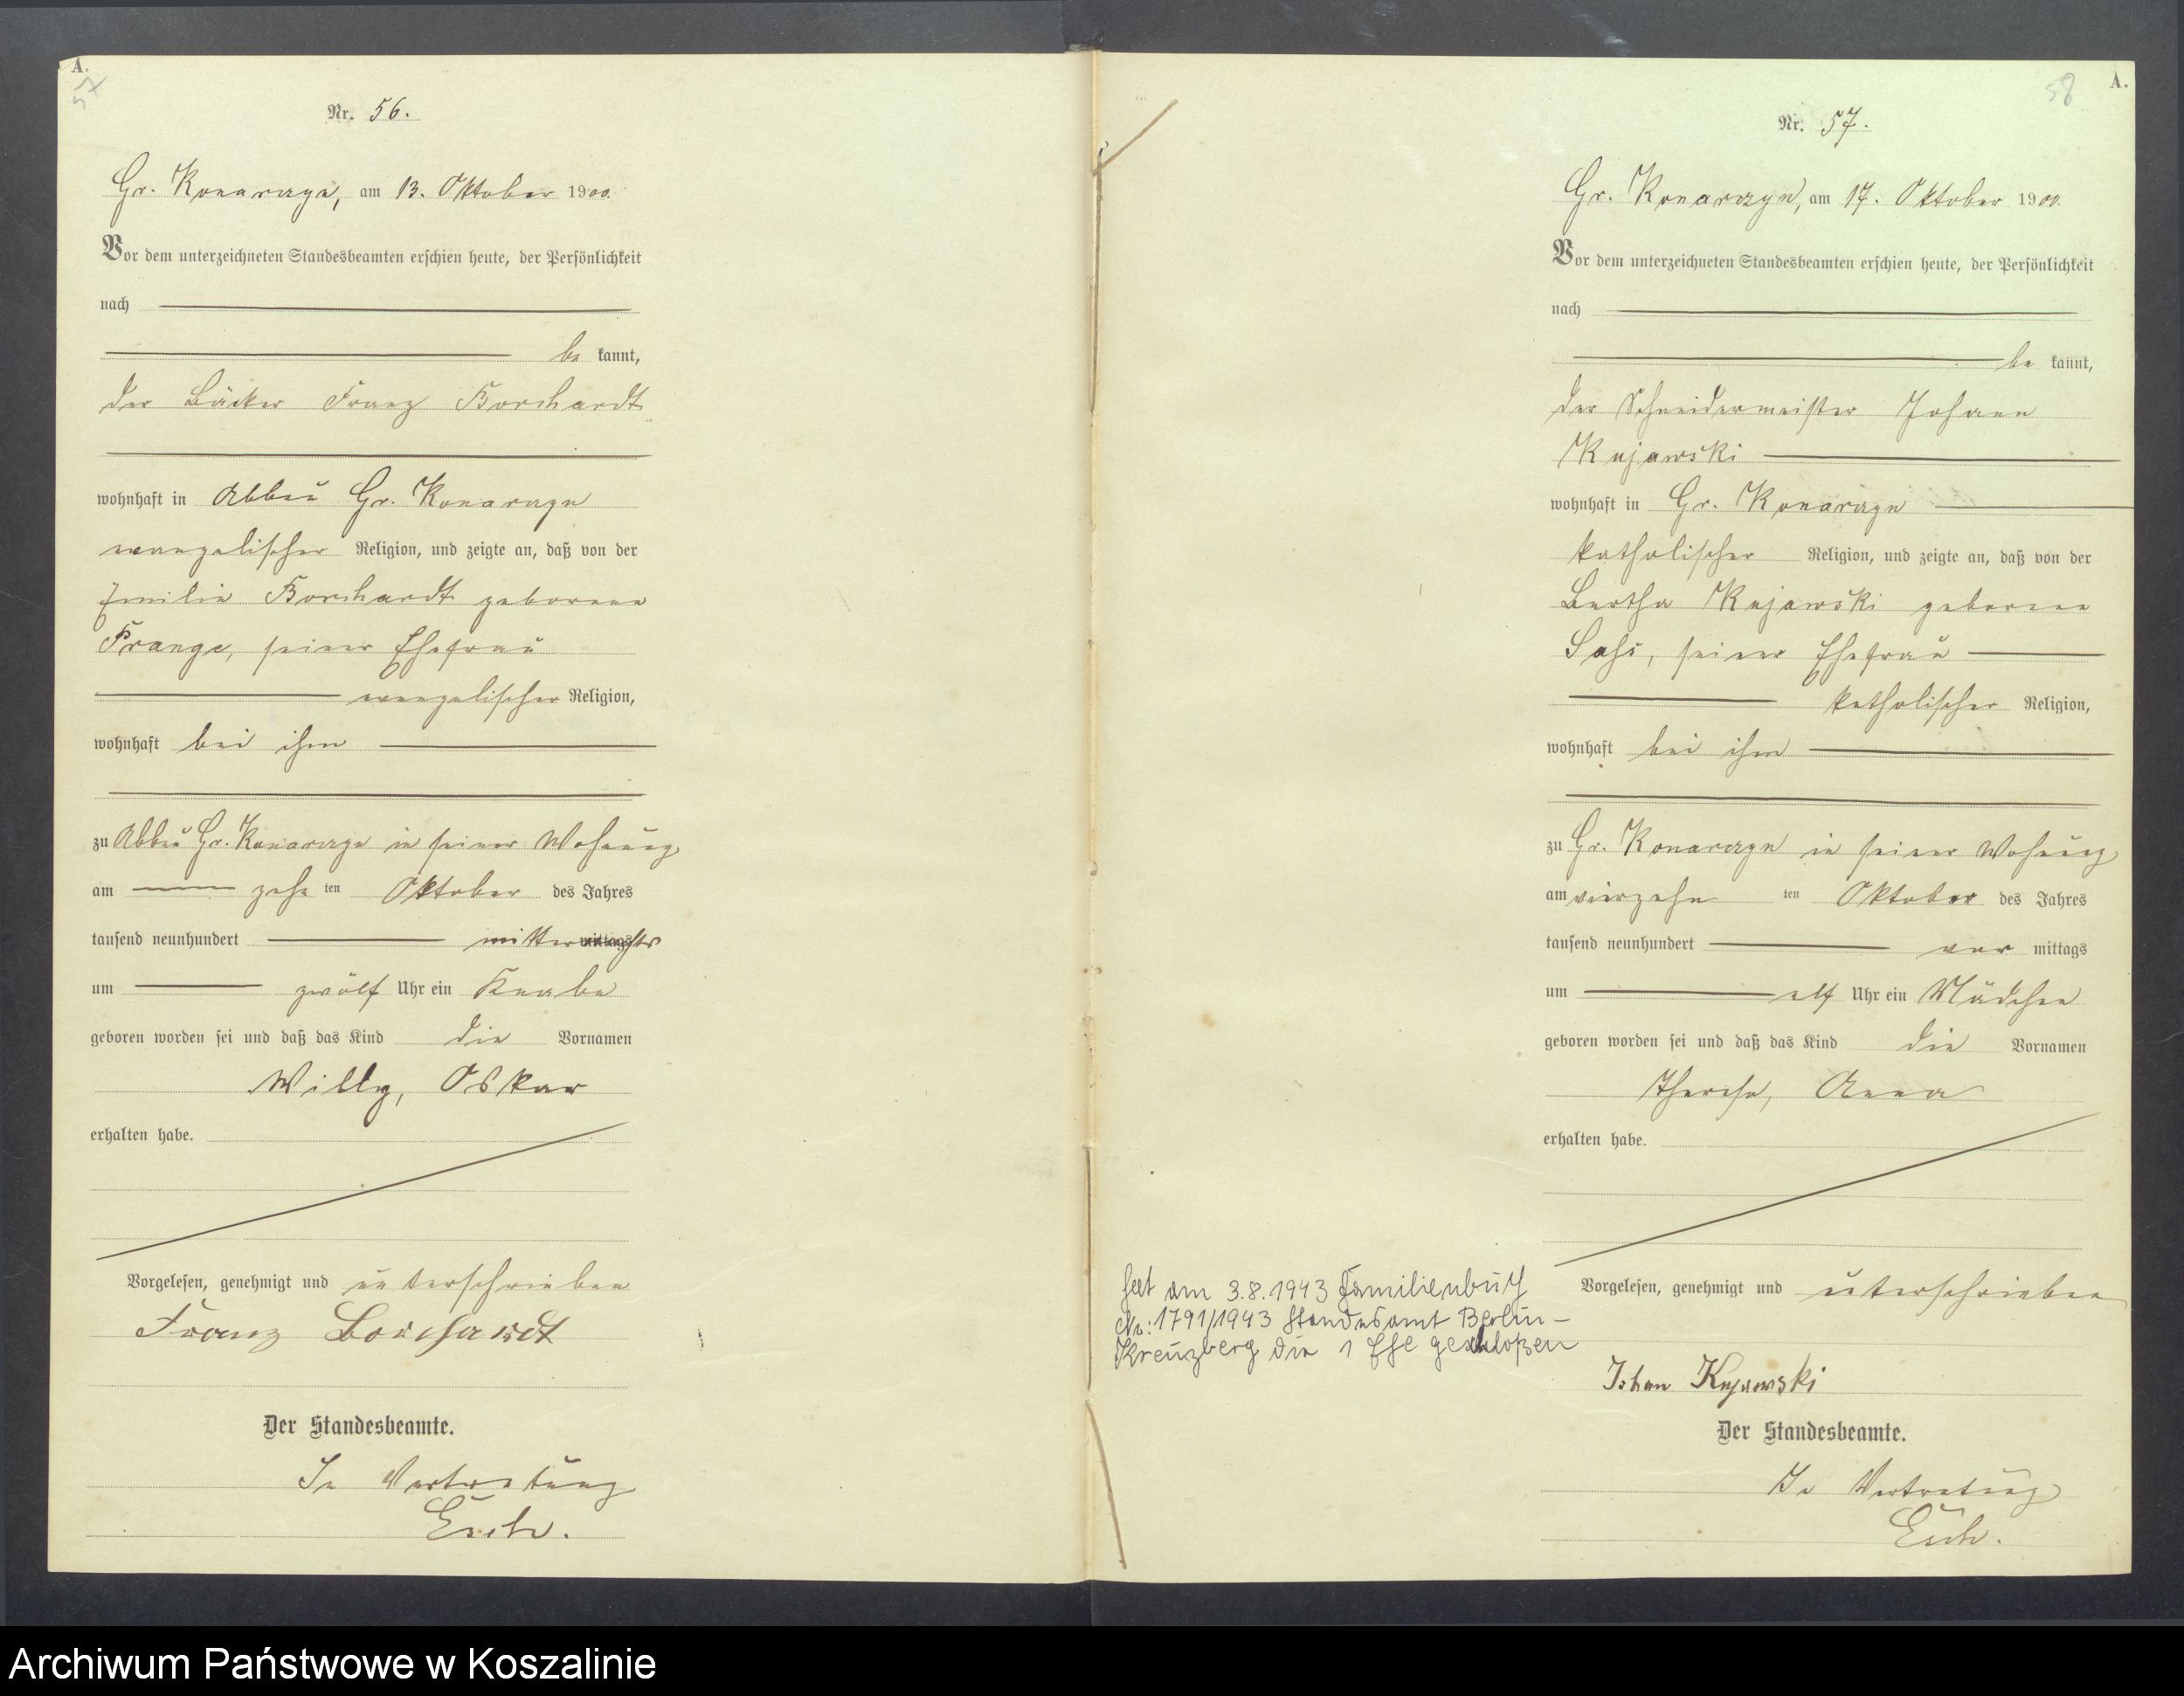 A.
57
Nr. 56.
Gr. Konarzyn, am 13. Oktober 1900.
Vor dem unterzeichneten Standesbeamten erschien heute, der Persönlichkeit
nach
be kannt,
der Bäcker Franz Borchardt
wohnhaft in Abbau Gr. Konarzyn
evangelischer Religion, und zeigte an, daß von der
Emilie Borchardt geborene
Prange, seiner Ehefrau
evangelischer Religion,
wohnhaft bei ihm
zu Abbau Gr. Konarzyn in seiner Wohnung
am zehn ten Oktober des Jahres
tausend neunhundert mitternachts
um zwölf Uhr ein Knabe
geboren worden sei und daß das Kind die Vornamen
Willy, Oskar
erhalten habe.
Vorgelesen, genehmigt und unterschrieben
Franz Borchardt
Der Standesbeamte.
In Vertretung
Esch.
58
A.
Nr. 57.
Gr. Konarzyn, am 17. Oktober 1900.
Vor dem unterzeichneten Standesbeamten erschien heute, der Persönlichkeit
nach
be kannt,
der Schneidermeister Johann
Kujawski
wohnhaft in Gr. Konarzyn
katholischer Religion, und zeigte an, daß von der
Bertha Kujawski geborene
Sahs, seiner Ehefrau
katholischer Religion,
wohnhaft bei ihm
zu Gr. Konarzyn in seiner Wohnung
am vierzehn ten Oktober des Jahres
tausend neunhundert vor mittags
um elf Uhr ein Mädchen
geboren worden sei und daß das Kind die Vornamen
Therese, Anna
erhalten habe.
Vorgelesen, genehmigt und unterschrieben
Johan Kujawski
Der Standesbeamte.
In Vertretung
Esch.
hat am 3.8.1943 Familienbuch
Nr: 1791/1943 Standesamt Berlin-
Kreuzberg die 1 Ehe geschloßen
Archiwum Państwowe w Koszalinie